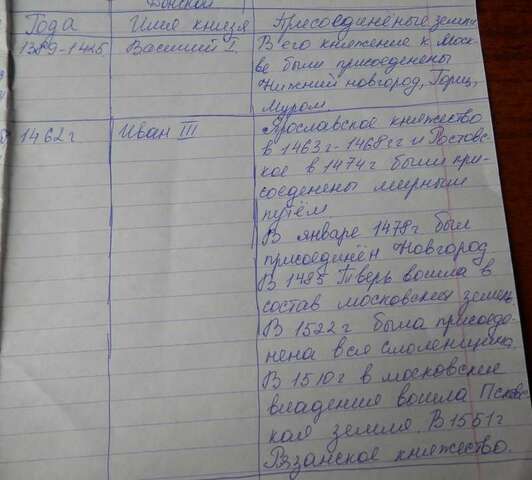 Донской
Года Имя князя Присоединённые земли
1389-1425 Василий I. В его княжение к Моск-
ве были присоеденены
Нижний новгород,
Муром.
1462г Иван III Ярославское княжество
в 1463г-1468гг и Ростовс-
кое в 1474г были при-
соеденены мирным
путём.
В январе 1478г был
присоединён Новгород
В 1485 Тверь вошла в
состав московских земель
В 1522г была присоеде-
нена вся Смоленщина.
В 1510г в московские
владения вошла Псковс-
кая земля. В 1551г
Рязанское княжество.